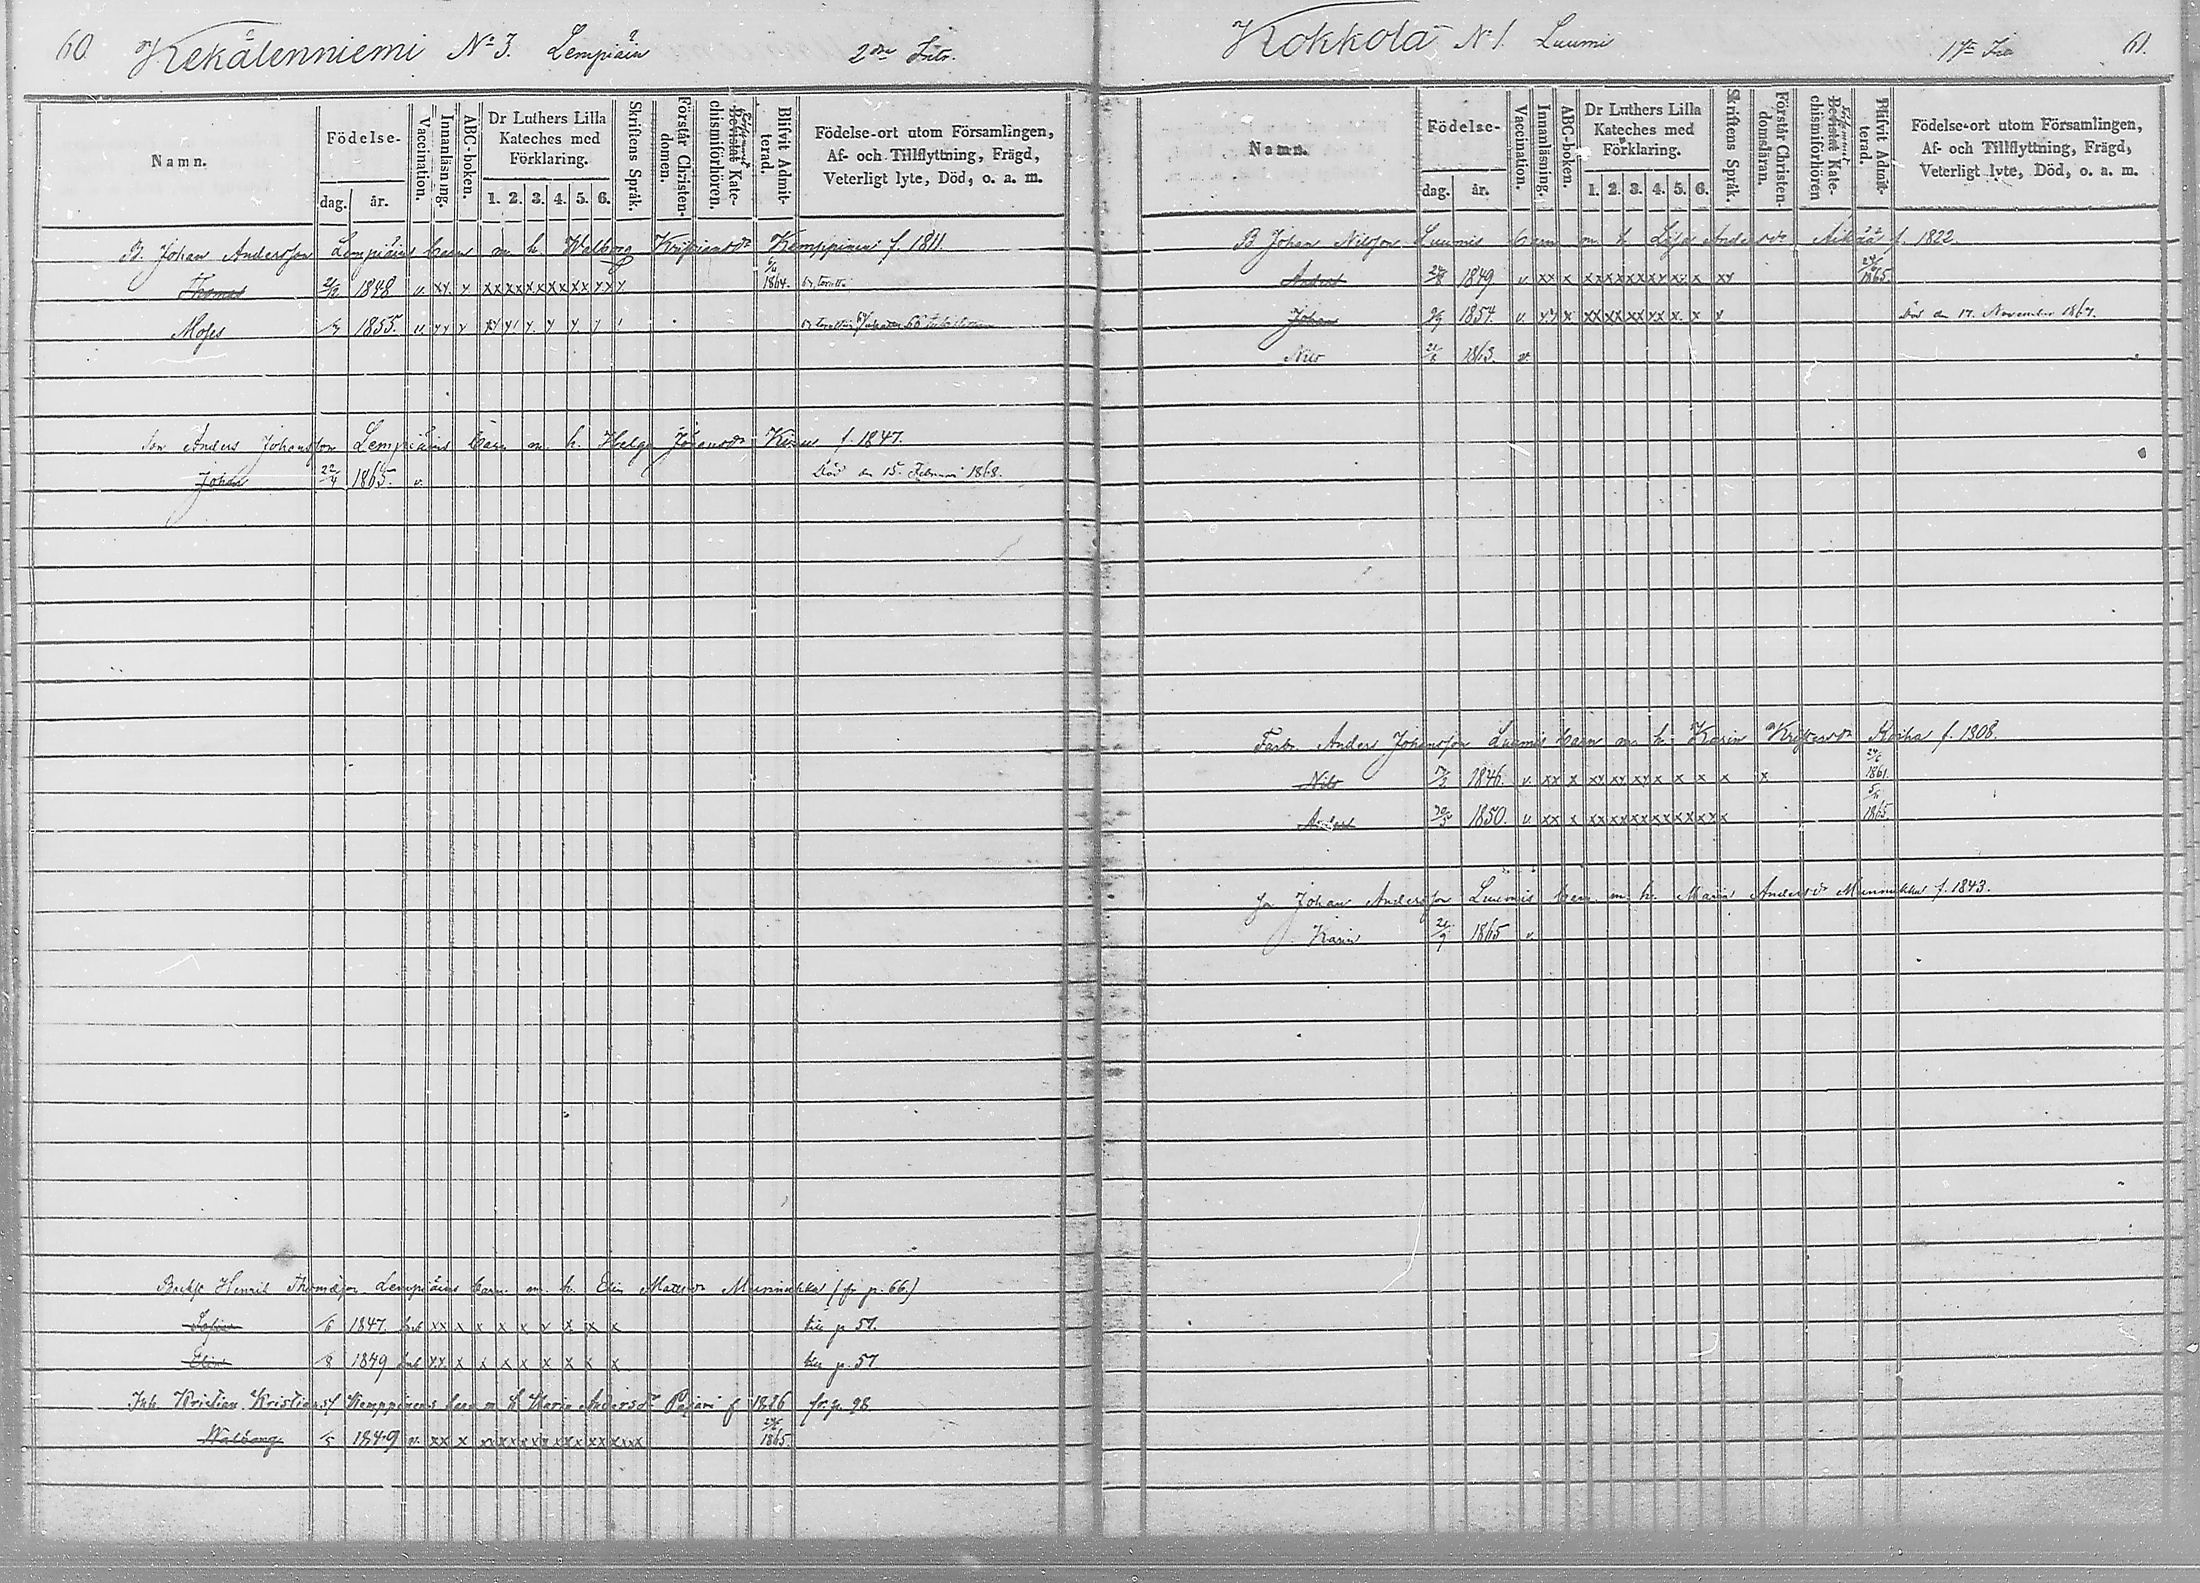 60. Kekälenniemi No 3. Lempiäin 2dra Intr.
Namn.
Födelse-
dag.
år.
Vaccination.
Innanläsning.
ABC-boken.
Dr Luthers Lilla Kateches med Förklaring.
1. 2. 3. 4. 5. 6.
Skriftens Språk.
Förstår Christendomen.
Bevistat Katechismiförhören.
Blifvit Admitterad.
Födelse-ort utom Församlingen, Af- och Tillflyttning, Frägd, Veterligt lyte, Död, o. a. m.
B. Johan Andersson Lempiäins barn m. h. Walborg Kemppinen f. 1811.
Thomas 1848 v. xx x xx xx xx xx xx xx x 1864.
Moses 1855. v.
Son Anders Johansson Lempiäins barn m. h. Helga Johansdr f. 1847.
Johan 22/4 1865. v. Död den 15 Februari 1868.
Henrik Thomasson Lempiäins barn m. h. Elin Mattsdr Munnukka (fr. p. 66.)
Sofia 1847. xx x x x x x x x x till p. 57.
Elin 1849 xx x x x x x x x till p. 57
Inh. Kristian Kristianss Kemppinens barn m h Maria Andersdr Pajari f 1826 fr. p. 98
Walborg 1849 v. xx x xx xx xx xx xx xx xxx 1865.
Kokkola No 1. Luumi 61.
Namn.
Födelse-
dag.
år.
Vaccination.
Innanläsning.
ABC-boken.
Dr Luthers Lilla Kateches med Förklaring.
1. 2. 3. 4. 5. 6.
Skriftens Språk.
Förstår Christendomsläran.
Bevistat Katechismiförhören
Blifvit Admitterad.
Födelse-ort utom Församlingen, Af- och Tillflyttning, Frägd, Veterligt lyte, Död, o. a. m.
B Johan Nilsson Luumis barn m h Lisa Andersdr f. 1822.
Anders 1849 v xx x xx xx xx xx x x xx 1865.
Johan 1854. v. xx x xx xx xx xx x. x x Död den 17. November 1867.
Nils 1863. v.
Farbr. Anders Johansson Luumis barn m. h. Karin Roiha f. 1808.
Nils 1846. v. xx x xx xx xx x x x x x 1861.
Anders 1850. v xx x xx xx xx xx xx xx x 1865.
Son Johan Andersson Luumis barn m. h. Maria Andersdr Munnukka f. 1843.
Karin 1865 v.